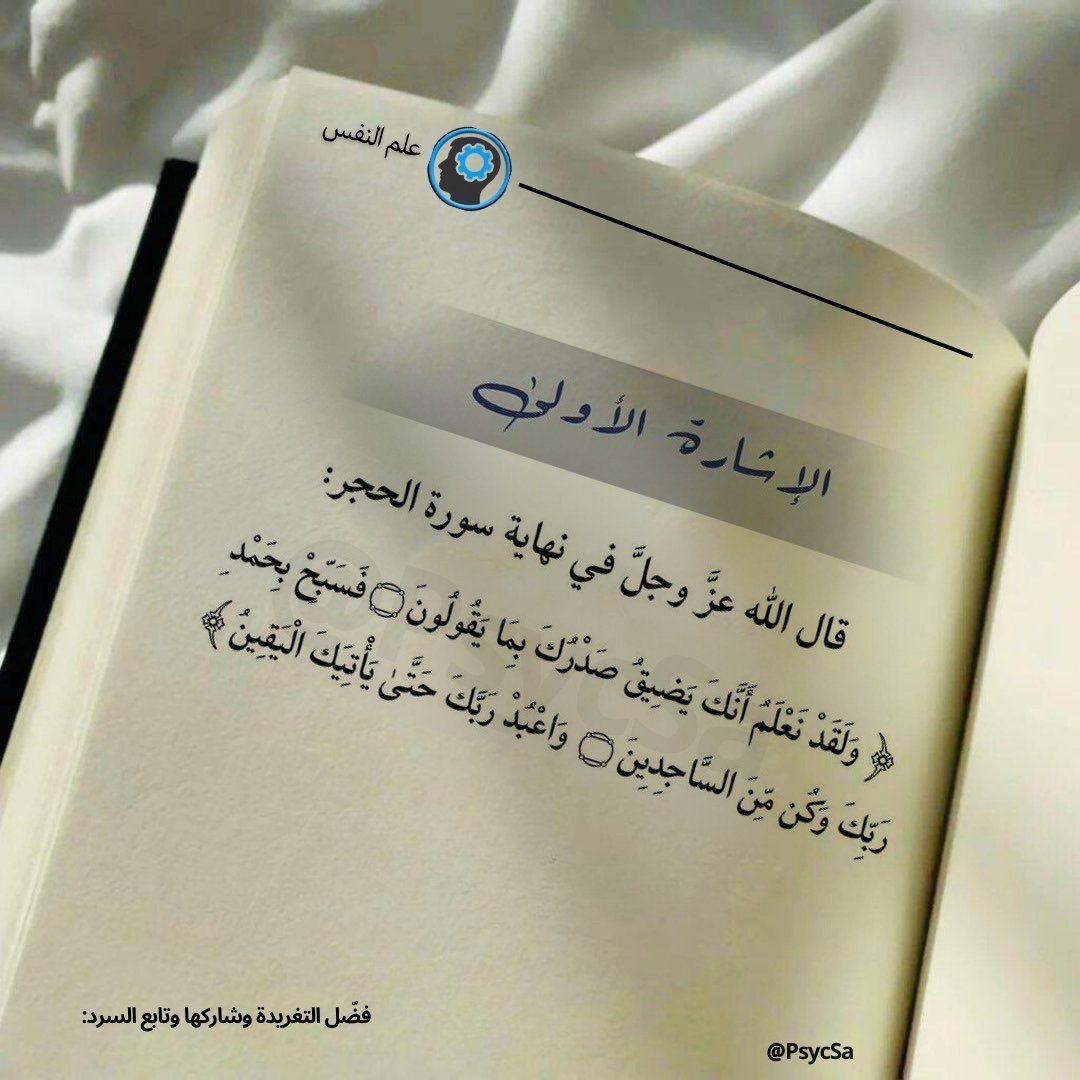 علم النفس
الإشارة الأولىٰ
قال الله عزَّ وجلَّ في نهاية سورة الحجر:
﴿ وَلَقَدْ نَعْلَمُ أَنَّكَ يَضِيقُ صَدْرُكَ بِمَا يَقُولُونَ ۝ فَسَبِّحْ بِحَمْدِ
رَبِّكَ وَكُن مِّنَ السَّاجِدِينَ ۝ وَاعْبُدْ رَبَّكَ حَتَّىٰ يَأْتِيَكَ الْيَقِينُ ﴾
@PsycSa
فضّل التغريدة وشاركها وتابع السرد:
@PsycSa